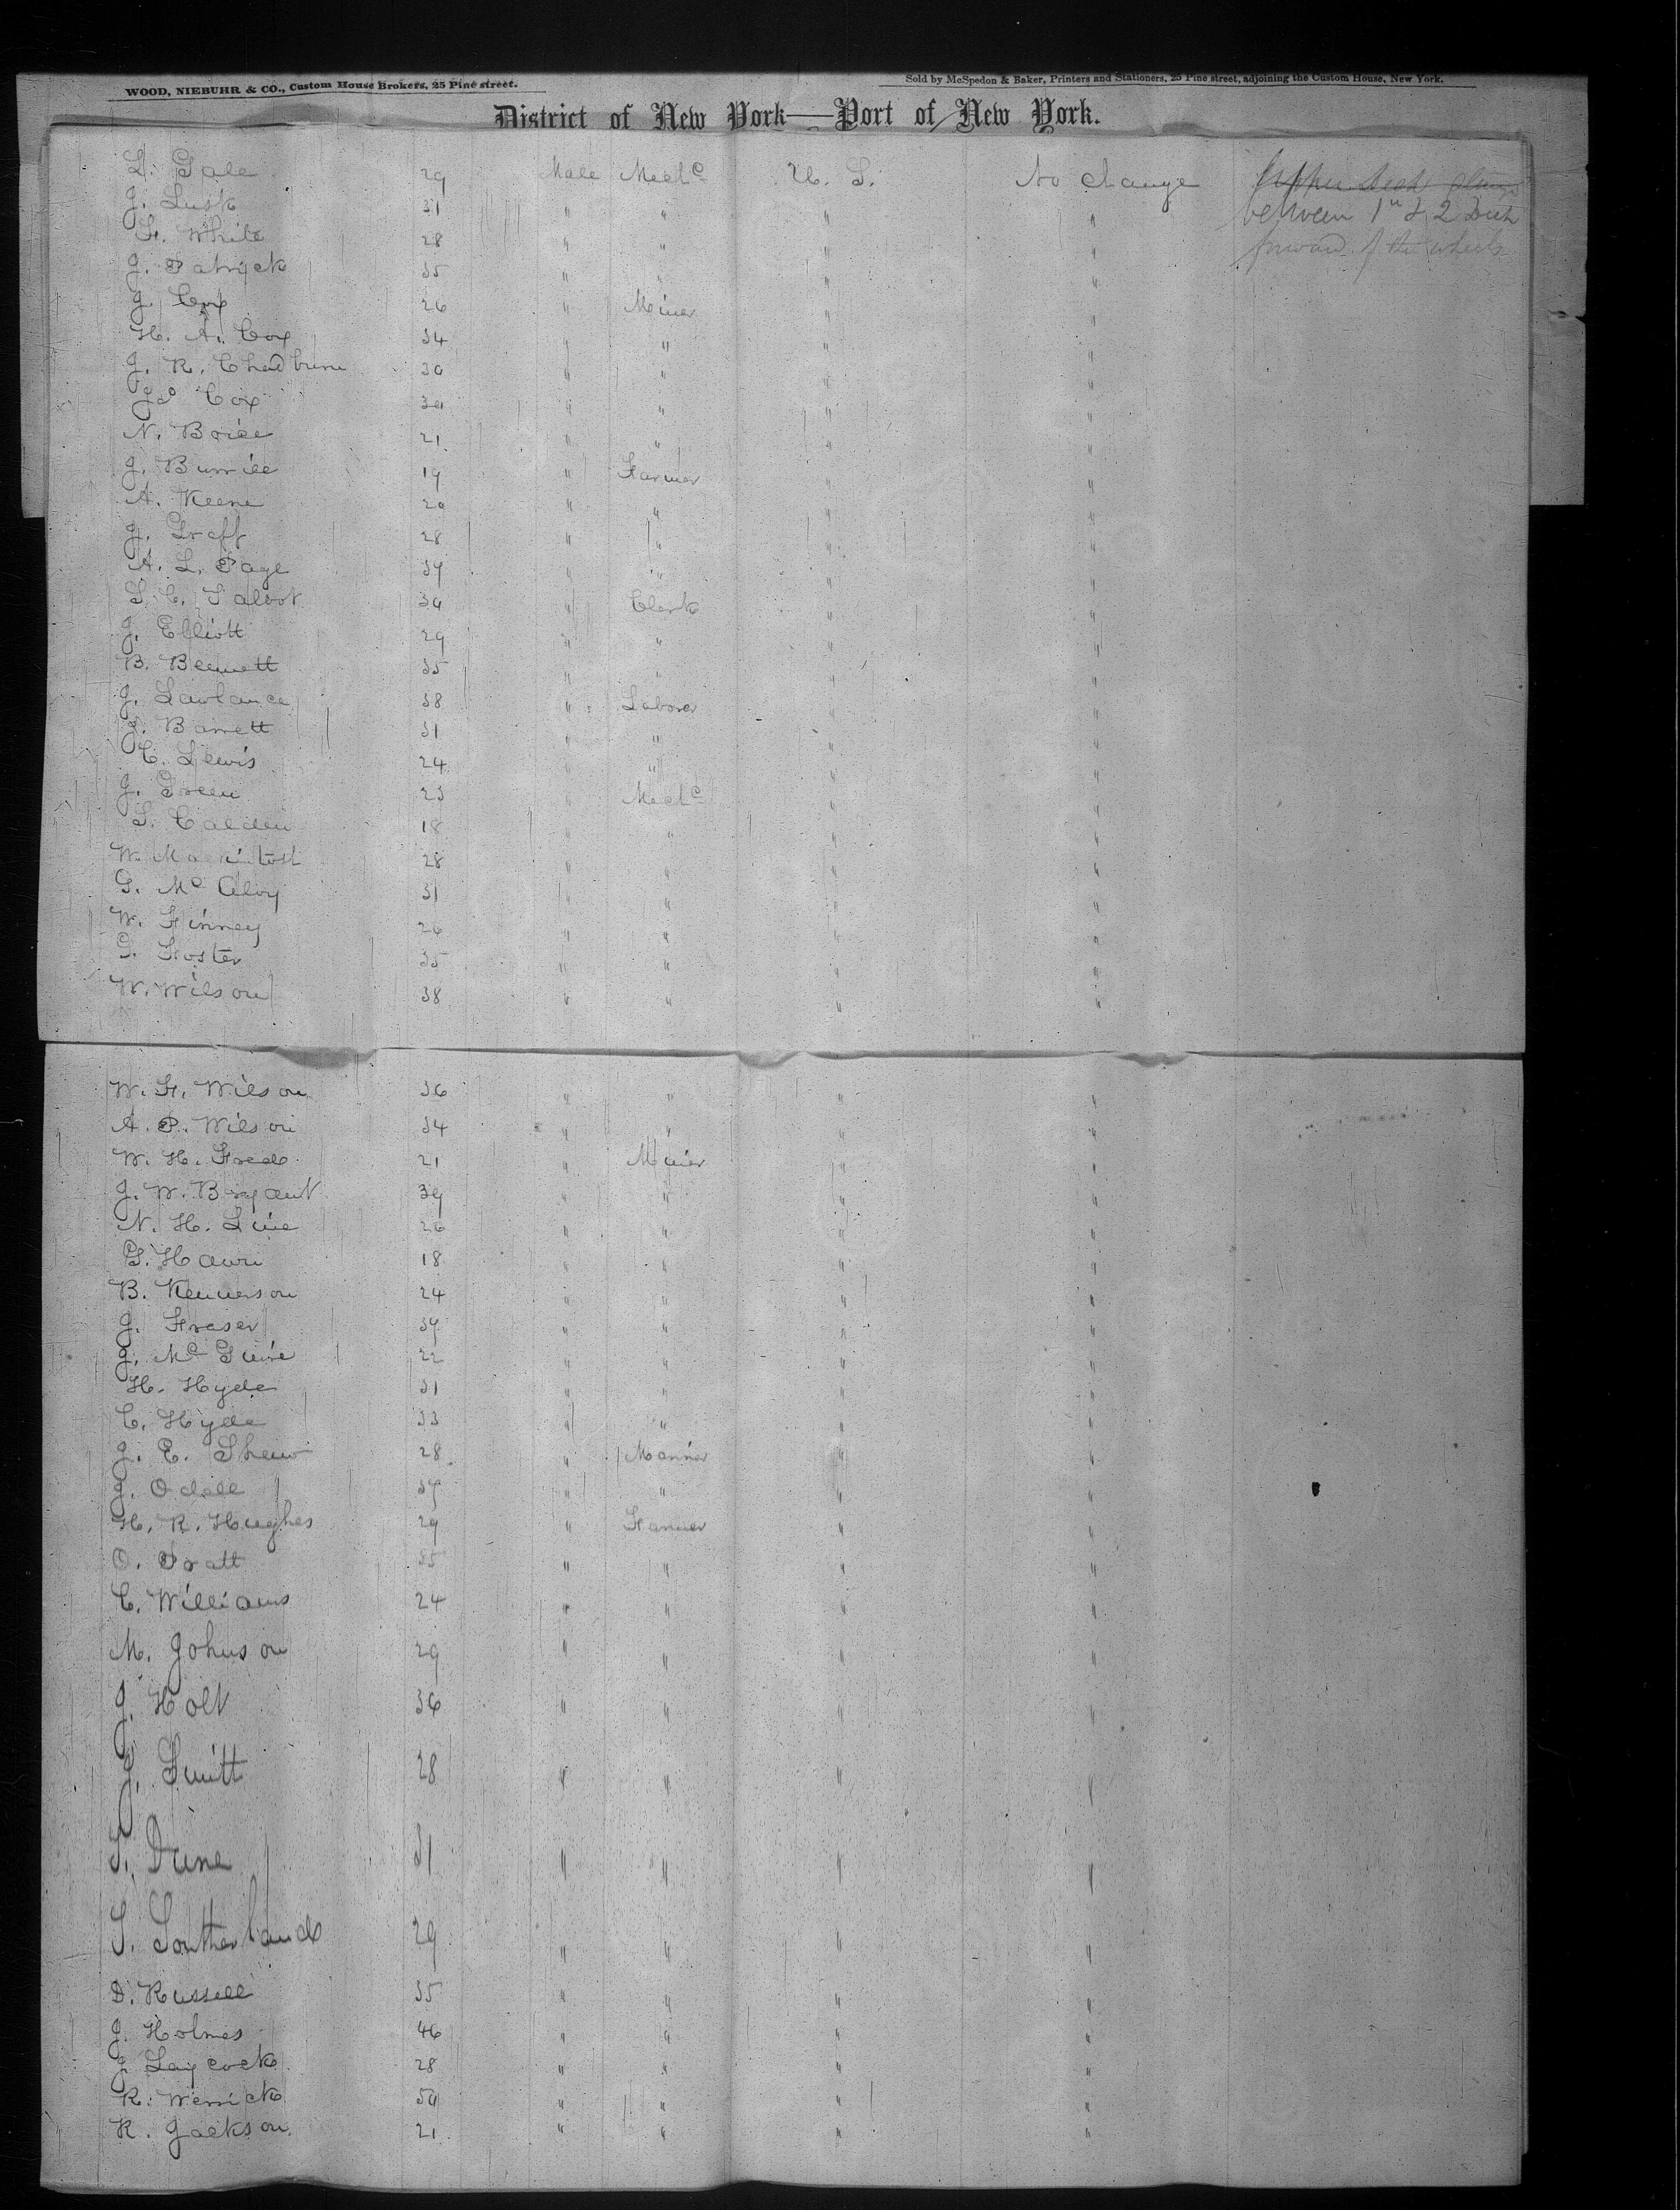 WOOD, NIEBUHR & CO., Custom House Brokers, 25 Pine street.
Sold by McSpedon & Baker, Printers and Stationers, 25 Pine street, adjoining the Custom House, New York.
District of New York—Port of New York.
L. Gale 29 Male Mech^c U. S. No change
J. Lusk 31 " " " " between 1st & 2 Deck
F. White 28 " " " " forward of the wheels
J. Patrick 35 " " " "
J. Cox 26 " Miner " "
H. A. Cox 34 " " " "
J. R. Chadburne 30 " " " "
Jao Cox 30 " " " "
N. Boice 21 " " " "
J. Burrill 19 " Farmer " "
A. Keene 20 " " " "
J. Graff 28 " " " "
A. L. Page 39 " " " "
S. C. Talbot 30 " Clerk " "
J. Elliott 29 " " " "
B. Bennett 35 " " " "
J. Lawlance 38 " Laborer " "
J. Barrett 31 " " " "
C. Lewis 24 " " " "
J. Green 23 " Mech^c " "
S. Calden 18 " " " "
W. Mackintosh 28 " " " "
G. Mc Alvy 31 " " " "
W. Finney 26 " " " "
G. Foster 35 " " " "
W. Wilson 38 " " " "
W. F. Wilson 36 " " " "
A. P. Wilson 34 " " " "
W. H. Freed 21 " Miner " "
J. W. Bryant 39 " " " "
N. H. Line 26 " " " "
G. Hawn 18 " " " "
B. Kennerson 24 " " " "
J. Fraser 39 " " " "
J. Mc Guire 22 " " " "
H. Hyde 31 " " " "
C. Hyde 33 " " " "
J. E. Shaw 28 " Mariner " "
J. Odell 39 " " " "
H. R. Hughes 29 " Farmer " "
O. Pratt 35 " " " "
C. Williams 24 " " " "
M. Johnson 29 " " " "
J. Holt 36 " " " "
J. Smitt 28 " " " "
T. Dune 31 " " " "
S. Southerland 29 " " " "
D. Russell 35 " " " "
J. Holmes 46 " " " "
J. Laycock 28 " " " "
R. Werrick 30 " " " "
R. Jackson 21 " " " "